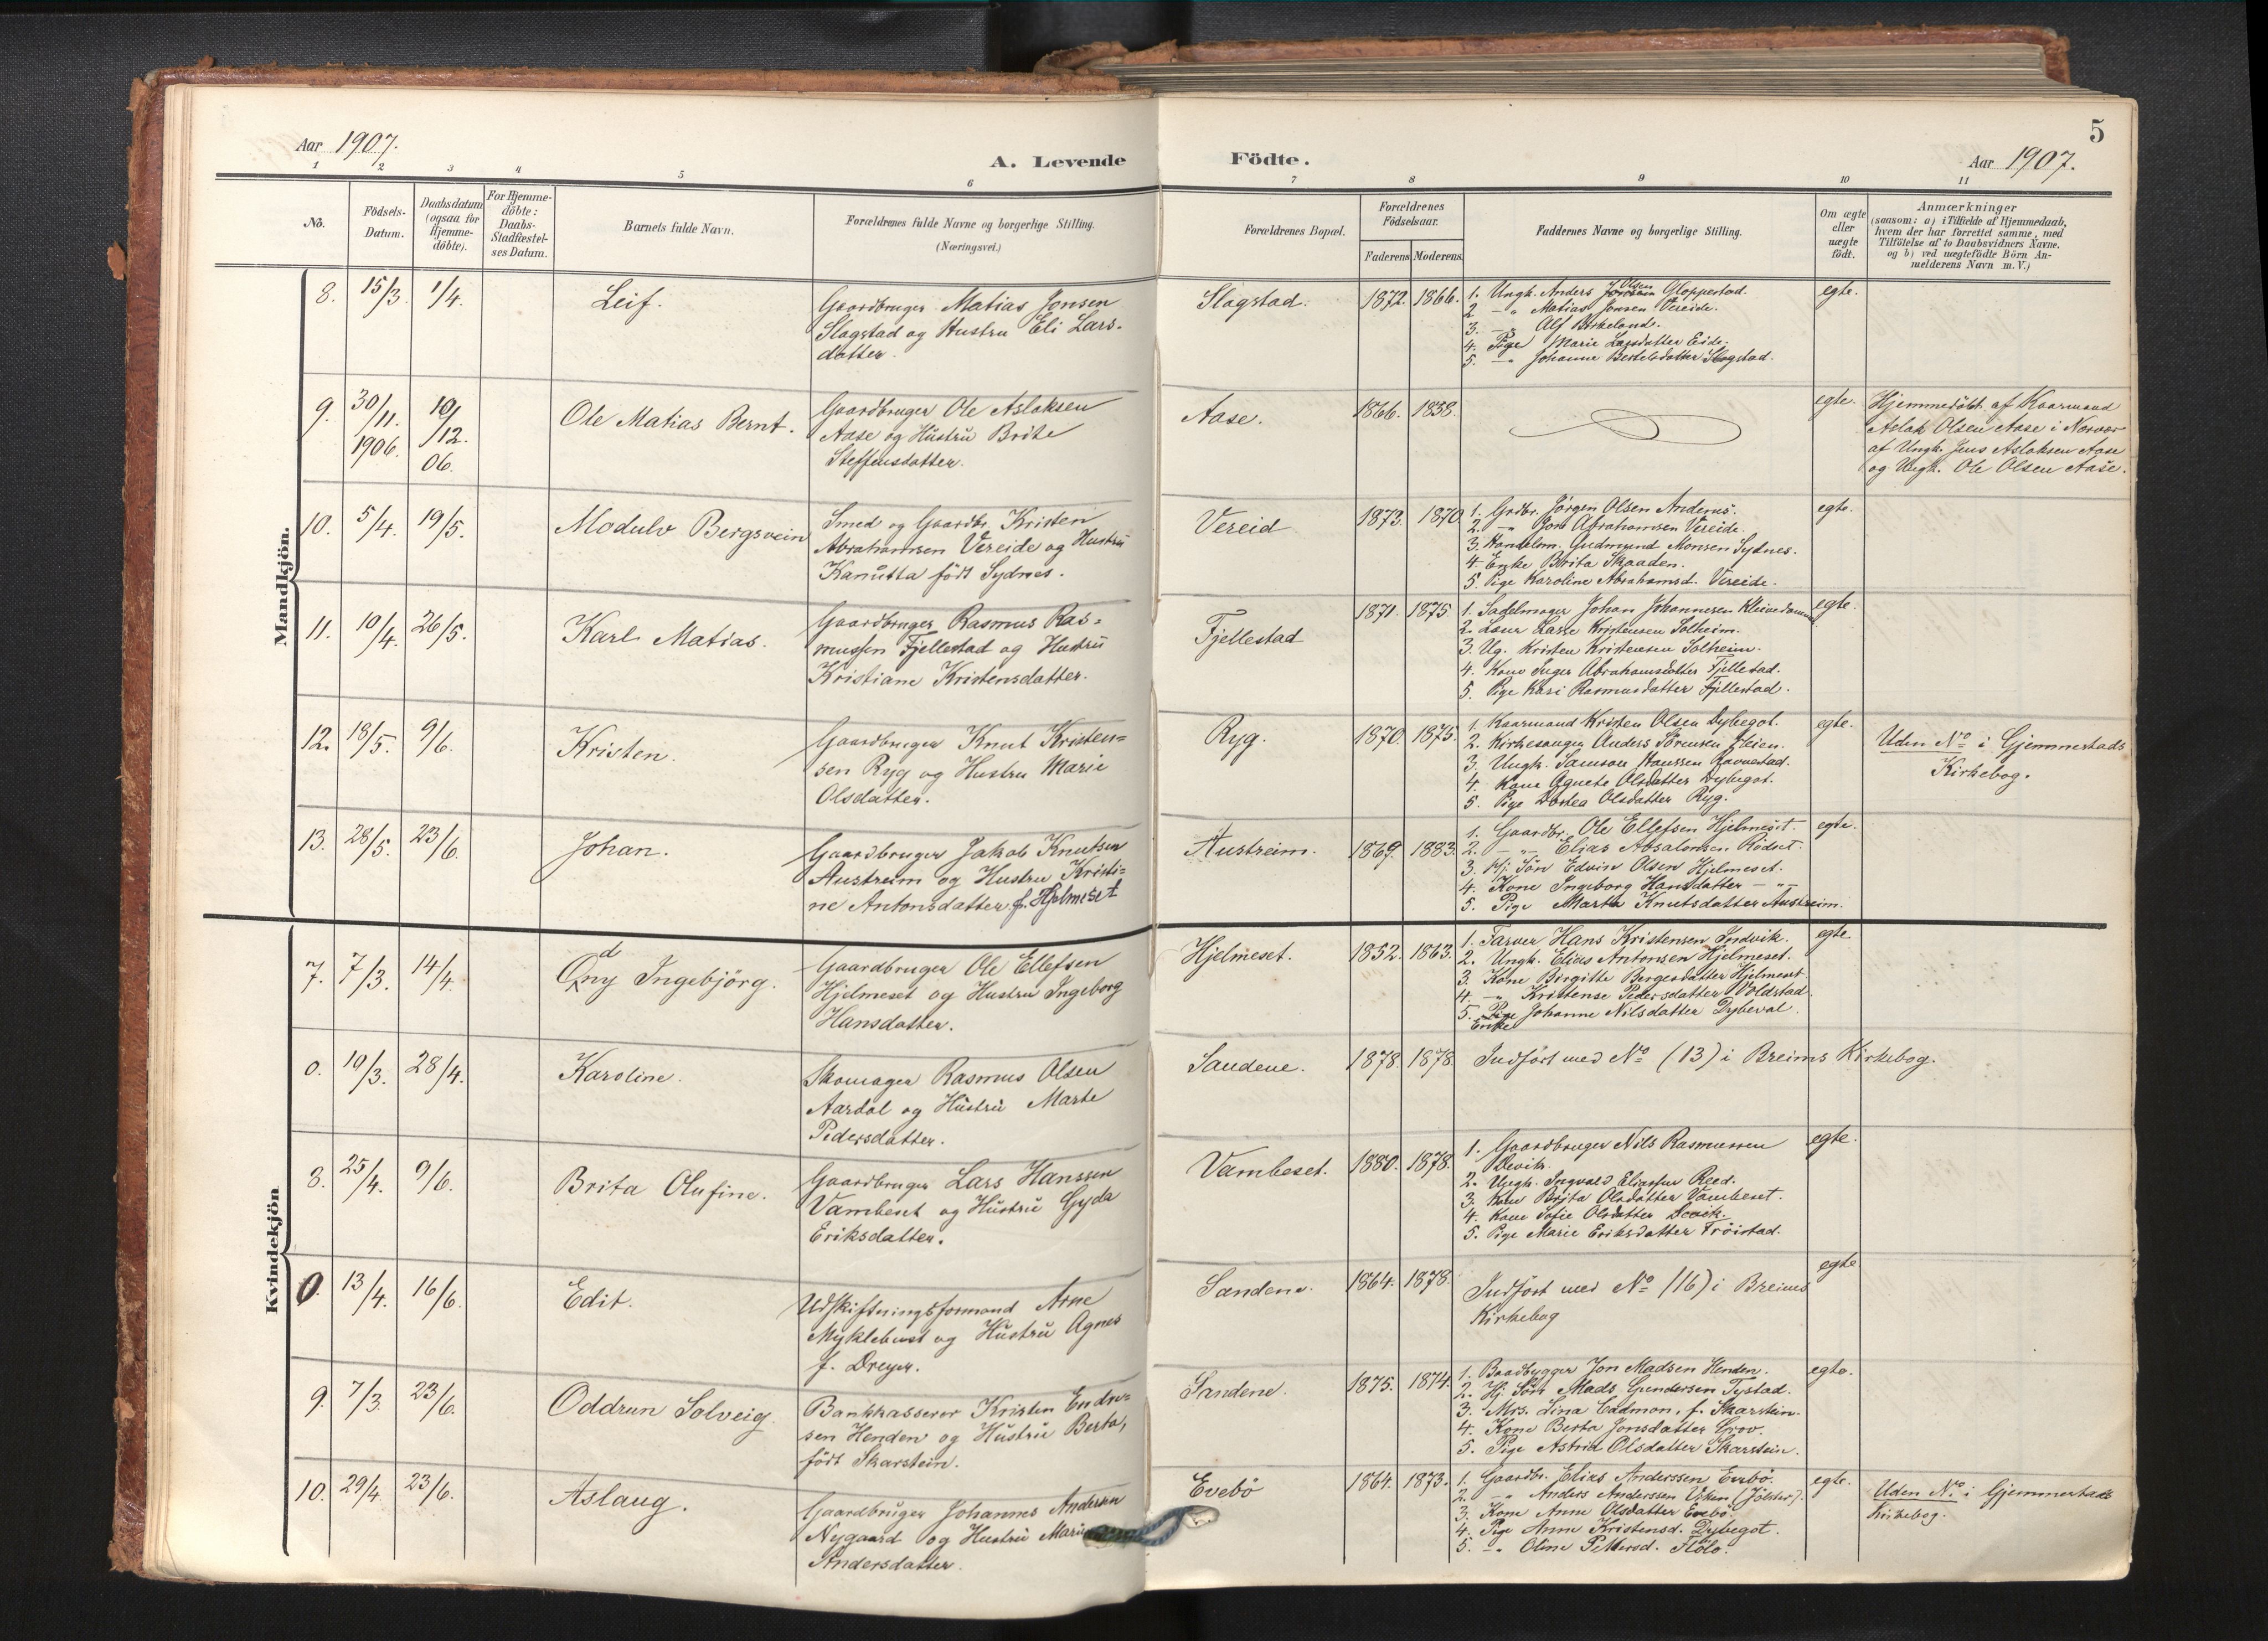 Aar 1907.
A. Levende
Födte.
Aar 1907.
5
1 2 3 4 5 6 7 8 9 10 11
No.
Födsels-
Datum.
Daabsdatum
(ogsaa for
Hjemme-
döbte).
For Hjemme-
döbte:
Daabs-
Stadfæstel-
ses Datum.
Barnets fulde Navn.
Forældrenes fulde Navne og borgerlige Stilling.
(Næringsvei.)
Forældrenes Bopæl.
Forældrenes
Födselsaar.
Faderens Moderens.
Faddernes Navne og borgerlige Stilling.
Om ægte
eller
uægte
födt.
Anmærkninger
(saasom: a) i Tilfælde af Hjemmedaab,
hvem der har forrettet samme, med
Tilföielse af to Daabsvidners Navne.
og b) ved uægtefödte Börn An-
melderens Navn m. V.)
Mandkjön.
8. 15/3. 1/4. Leif.
Gaardbruger Matias Jonsen
Slagstad og Hustru Eli Lars-
datter.
Slagstad. 1872. 1866.
1. Ungk. Anders Olsen Gloppestad.
2. -"- Matias Jonsen Vereide.
3. -"- Alf Birkeland.
4. Pige Marie Larsdatter Eide.
5. -"- Johanne Bertelsdatter Slagstad.
egte.
9. 30/11. 1906. 10/12. 06. Ole Matias Bernt.
Gaardbruger Ole Aslaksen
Aase og Hustru Brite
Steffensdatter.
Aase. 1866. 1858.
egte.
Hjemmedöbt af Kaarmand
Aslak Olsen Aase i Nærvær
af Ungk. Jens Aslaksen Aase
og Ungk. Ole Olsen Aase.
10. 5/4. 19/5. Modulv Bergsvein
Smed og Gaardbr. Kristen
Abrahamsen Vereide og Hustru
Kanutta födt Sydnes.
Vereid 1873. 1870.
1. Grdbr. Jörgen Olsen Andenes.
2. -"- Jon Abrahamsen Vereide.
3. Handelsm. Gudmund Monsen Sydnes.
4. Enke Brita Skaaden.
5. Pige Karoline Abrahamsd. Vereide.
egte.
11. 10/4. 26/5. Karl Matias.
Gaardbruger Rasmus Ras-
mussen Fjellestad og Hustru
Kristiane Kristensdatter.
Fjellestad 1871. 1875.
1. Sadelmager Johan Johannesen
2. Lasse Kristensen Solheim.
3. Ug. Kristen Kristensen Solheim.
4. Kone Inger Abrahamsdatter Fjellestad.
5. Pige Kari Rasmusdatter Fjellestad.
egte.
12. 18/5. 9/6. Kristen.
Gaardbruger Knut Kristen-
sen Ryg og Hustru Marie
Olsdatter.
Ryg. 1870. 1875.
1. Kaarmand Kristen Olsen Dybegot.
2. Kirkesanger Anders Sörensen Heien.
3. Ungk. Samson Hanssen Ravnestad.
4. Kone Agnete Olsdatter Dybegot.
5. Pige Dortea Olsdatter Ryg.
egte.
Uden No i Gjemmestads
Kirkebog.
13. 28/5. 23/6. Johan.
Gaardbruger Jakob Knutsen
Austreim og Hustru Kristi-
ne Antonsdatter f. Hjelmeset
Austreim. 1869. 1883.
1. Gaardbr. Ole Ellefsen Hjelmeset.
2. -"- Elias Absalonsen Rödset.
3. Hj. Sön Edvin Olsen Hjelmeset.
4. Kone Ingeborg Hansdatter -"-
5. Pige Marta Knutsdatter Austreim.
egte.
Kvindekjön
7. 7/3. 14/4. Odny Ingebjörg.
Gaardbruger Ole Ellefsen
Hjelmeset og Hustru Ingeborg
Hansdatter.
Hjelmeset. 1852. 1863.
1. Farver Hans Kristensen Indvik.
2. Ungk. Elias Antonsen Hjelmeset.
3. Kone Birgitte Borgesdatter Hjelmeset
4. -"- Kristense Pedersdatter Voldstad
5. Pige Johanne Nilsdatter Dybeval.
Enke
egte
0. 19/3. 28/4. Karoline.
Skomager Rasmus Olsen
Aardal og Hustru Marte
Pedersdatter.
Sandene. 1878. 1878.
Indfört med No (13) i Breims Kirkebog.
8. 25/4. 9/6. Brita Olufine.
Gaardbruger Lars Hanssen
Vambeset og Hustru Gyda
Eriksdatter.
Vambeset. 1880. 1878.
1. Gaardbruger Nils Rasmussen
Devik.
2. Ungk. Ingvald Eliassen Reed.
3. Kone Brita Olsdatter Vambeset.
4. Kone Sofie Olsdatter Devik.
5. Pige Marie Eriksdatter Tröistad.
egte.
0. 13/4. 16/6. Edit.
Udskiftningsformand Arne
Myklebust og Hustru Agnes
f. Dreyer.
Sandene. 1864. 1878.
Indfört med No (16) i Breims
Kirkebog
egte
9. 7/3. 23/6. Oddrun Solveig.
Bankkasserer Kristen Endre-
sen Henden og Hustru Berta,
födt Skarstein.
Sandene. 1875. 1874.
1. Baadbygger Jon Madsen Henden.
2. Hj. Sön Mads Gundersen Tystad.
3. Mrs. Lina Cadmon, f. Skarstein.
4. Kone Berta Jonsdatter Grov.
5. Pige Astrid Olsdatter Skarstein.
egte.
10. 29/4. 23/6. Aslaug.
Gaardbruger Johannes Andersen
Nygaard og Hustru Marie
Andersdatter.
Evebö 1864. 1873.
1. Gaardbr. Elias Anderssen Evebö.
2. -"- Anders Anderssen Viken (Jölster).
3. Kone Anne Olsdatter Evebö.
4. Pige Anne Kristensd. Dybegot.
5. -"- Oline Pettersd. Flölo.
egte.
Uden No i Gjemmestads
Kirkebog.